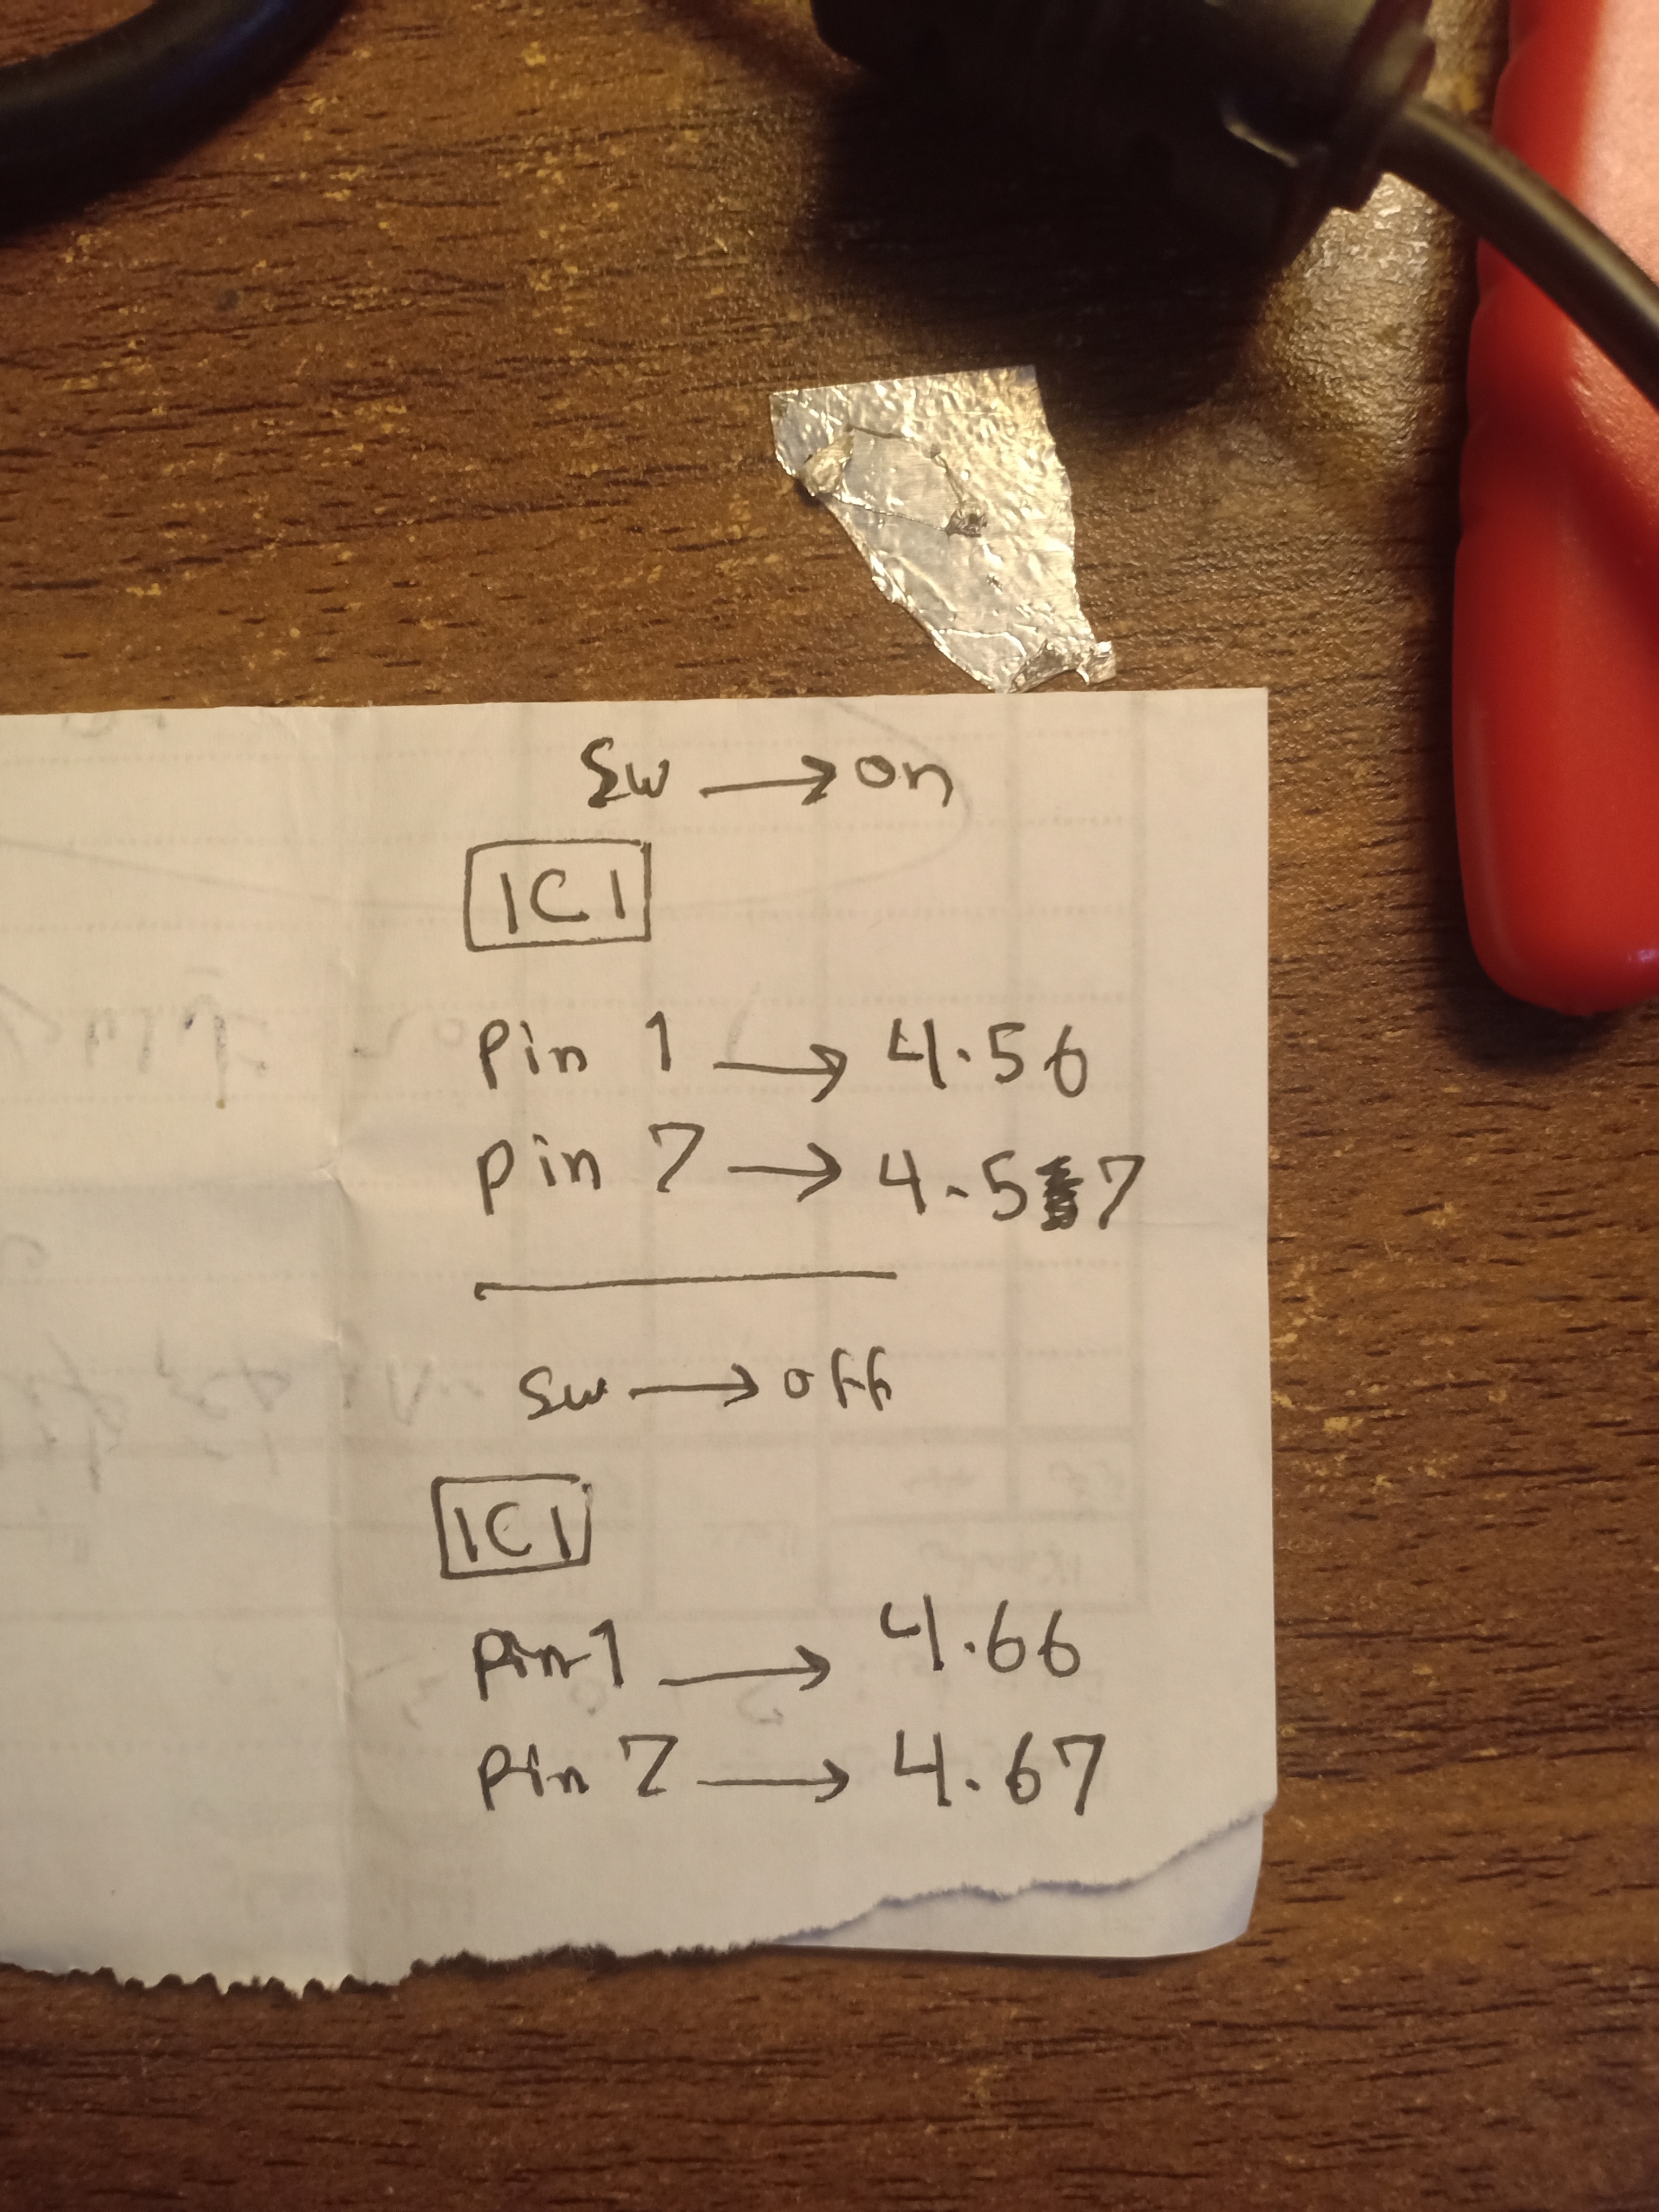 Sw → on
IC1
Pin 1 → 4.56
Pin 7 → 4.57
Sw → off
IC1
Pin 1 → 4.66
Pin 7 → 4.67